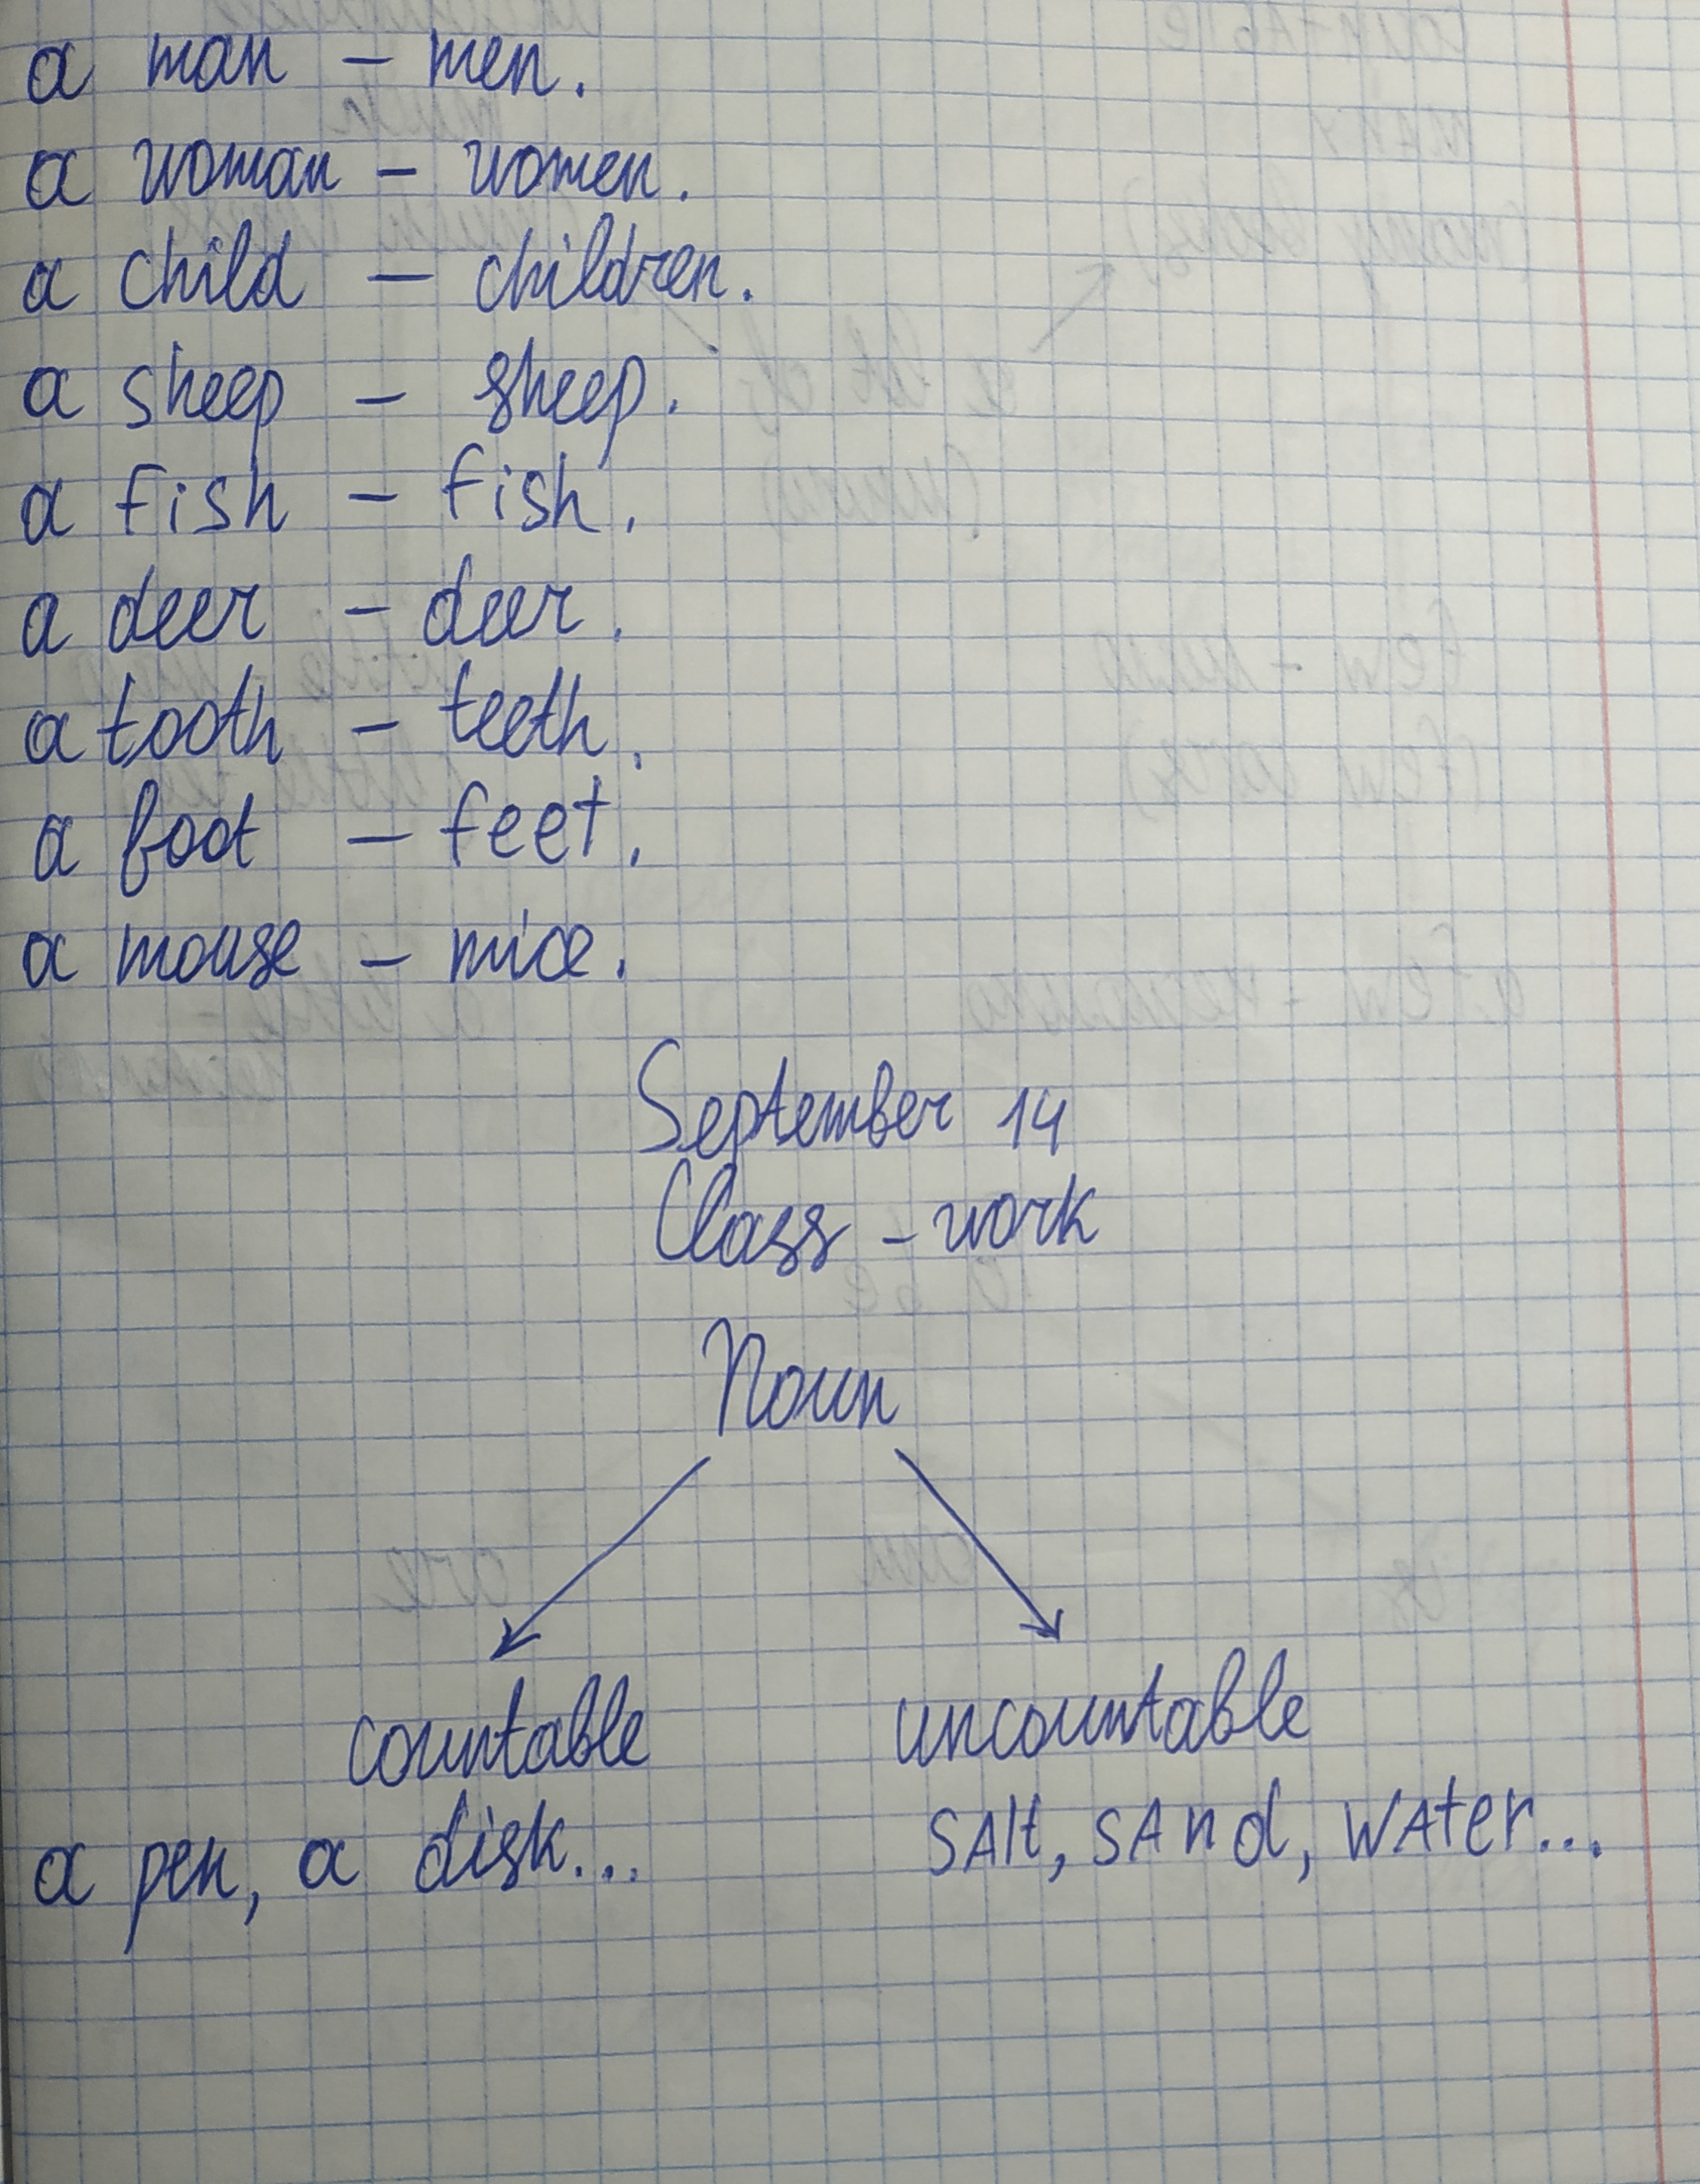 a man – men.
a woman – women.
a child – children.
a sheep – sheep.
a fish – fish.
a deer – deer.
a tooth – teeth.
a foot – feet.
a mouse – mice.
September 14
Class – work
Noun
countable uncountable
a pen, a disk... SAlt, SAnd, WAter...